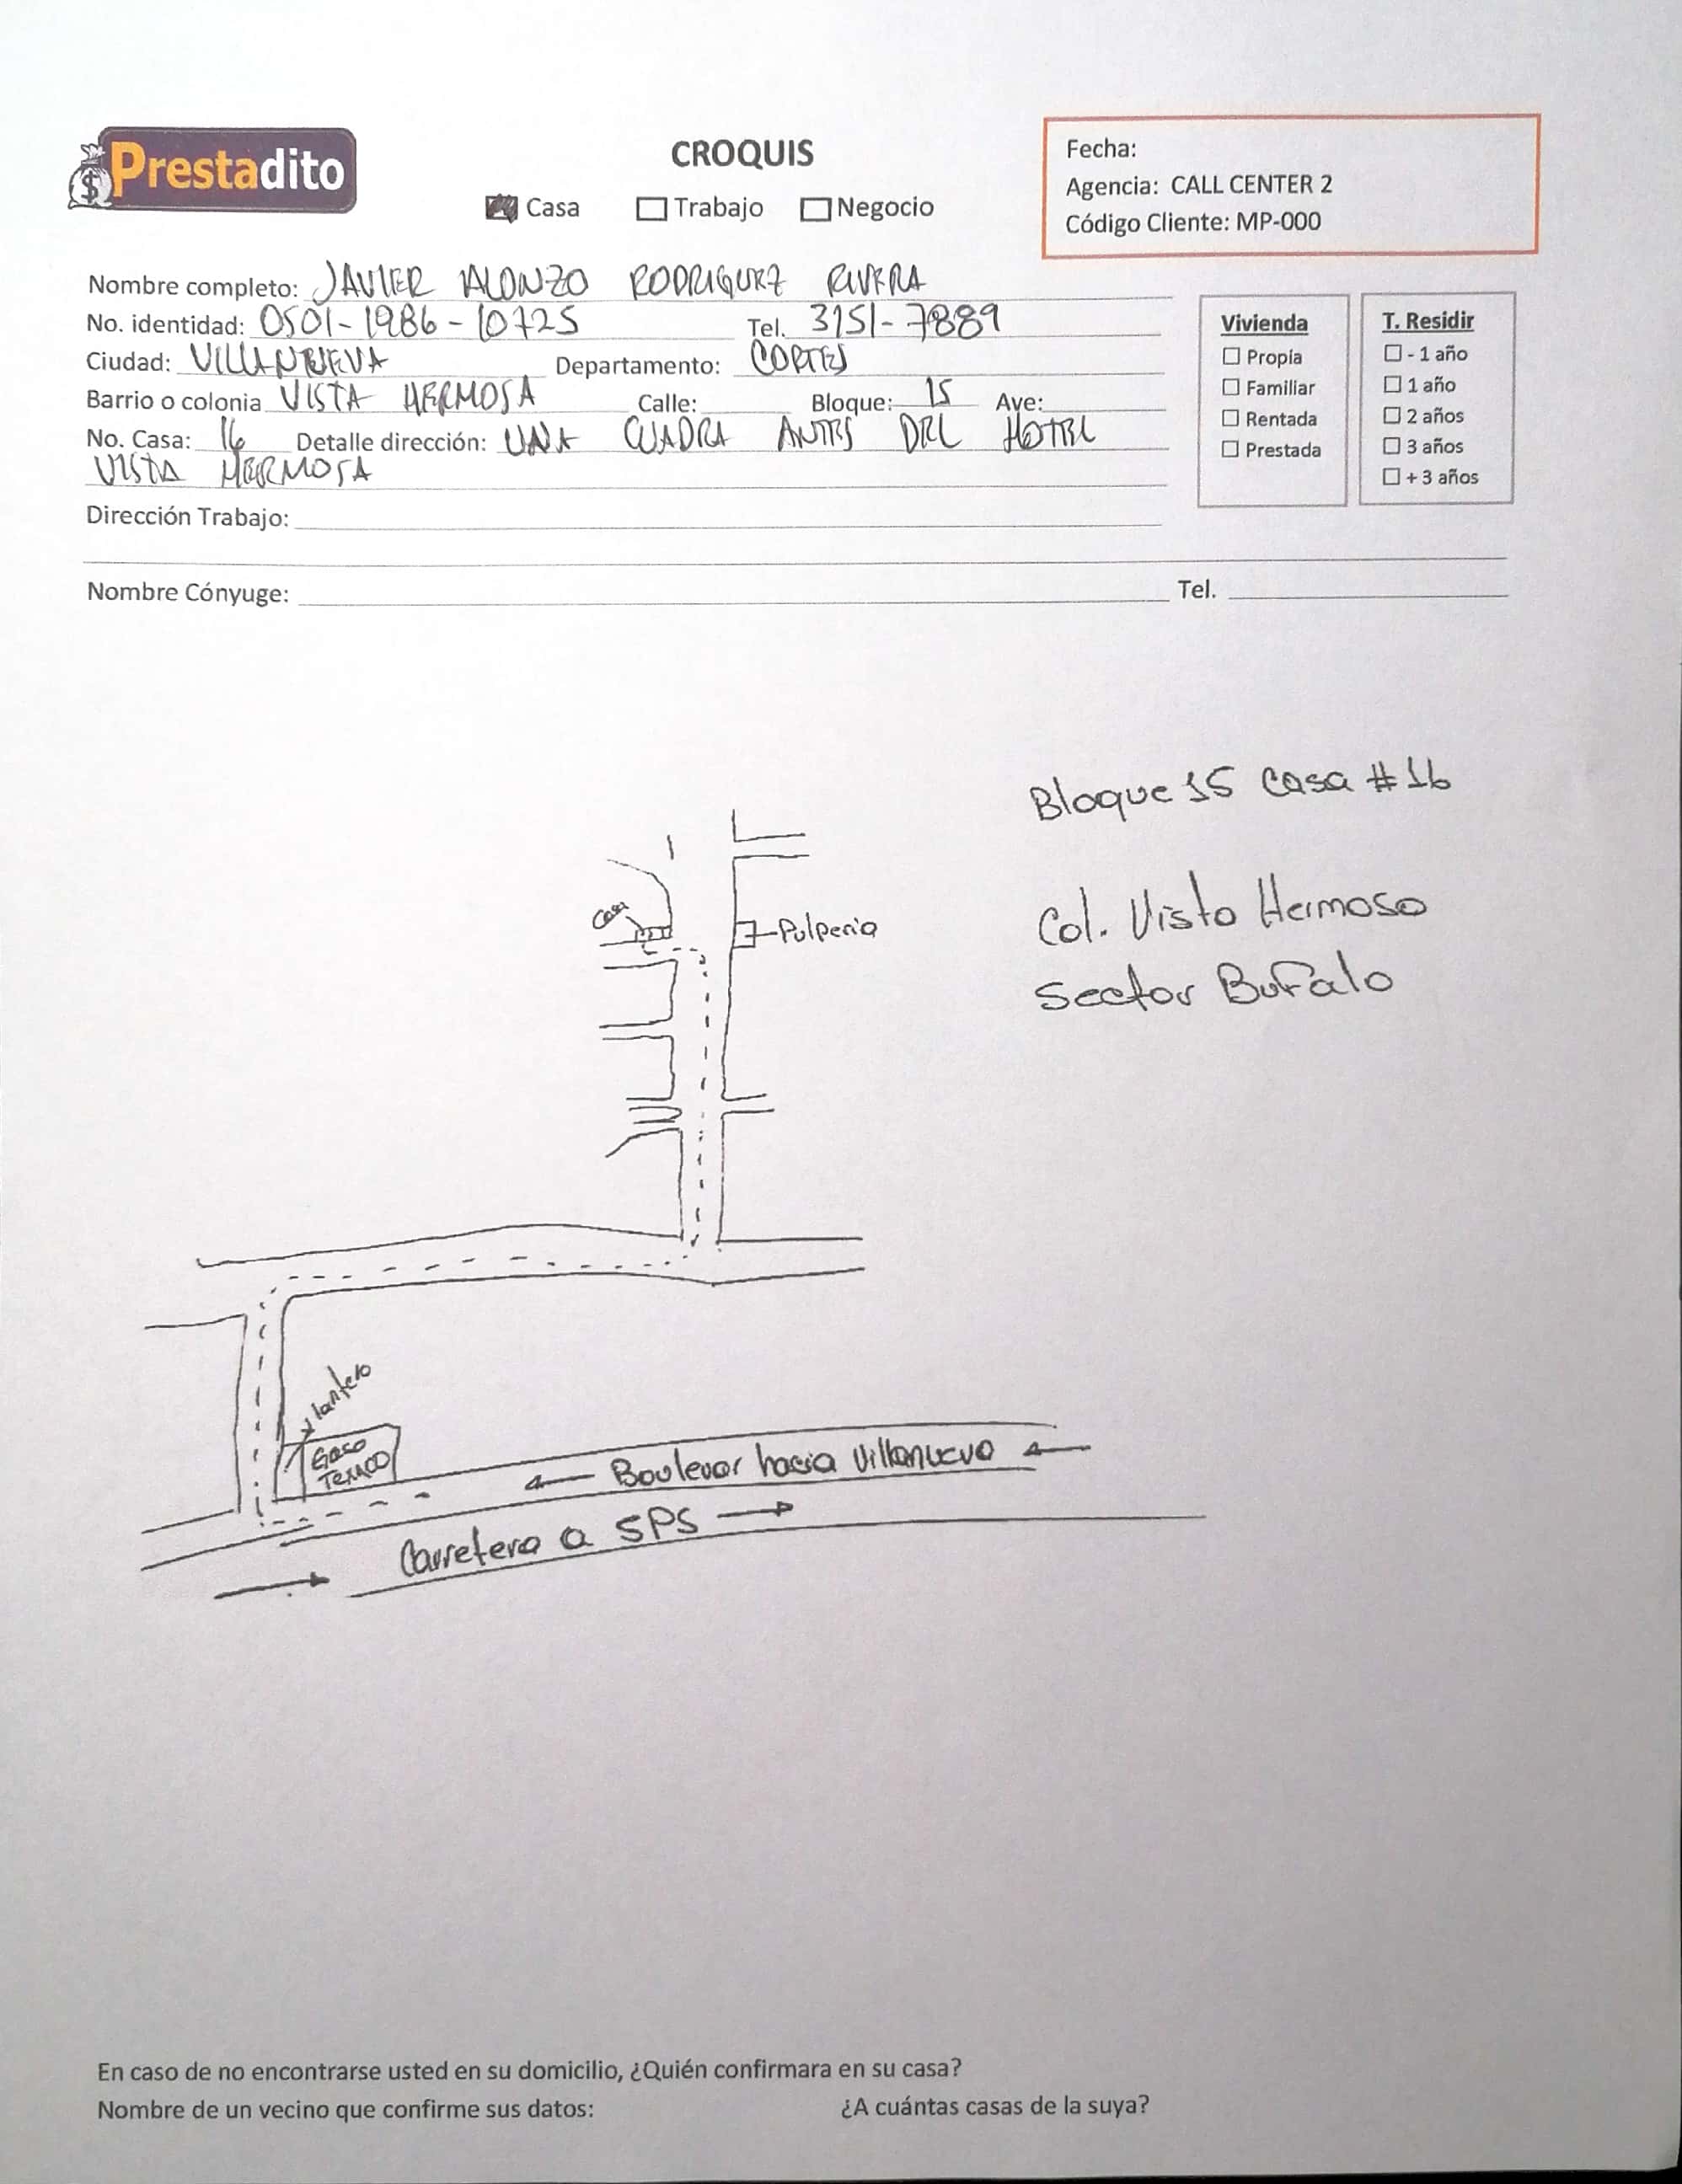 Prestadito
CROQUIS
Casa Trabajo Negocio
Fecha:
Agencia: CALL CENTER 2
Código Cliente: MP-000
Nombre completo: JAVIER ALONZO RODRIGUEZ RIVERA
No. identidad: 0501-1986-10725 Tel. 3151-7889
Ciudad: VILLANUEVA Departamento: CORTES
Barrio o colonia VISTA HERMOSA Calle: Bloque: 15 Ave:
No. Casa: 16 Detalle dirección: UNA CUADRA ANTES DEL HOTEL
VISTA HERMOSA
Dirección Trabajo:
Nombre Cónyuge: Tel.
Vivienda
Propia
Familiar
Rentada
Prestada
T. Residir
- 1 año
1 año
2 años
3 años
+ 3 años
Bloque 15 Casa #16
Col. Vista Hermosa
Sector Bufalo
Casa
Pulperia
llantera
Gaso
Texaco
Boulevar hacia Villanueva
Carretera a SPS
En caso de no encontrarse usted en su domicilio, ¿Quién confirmara en su casa?
Nombre de un vecino que confirme sus datos: ¿A cuántas casas de la suya?